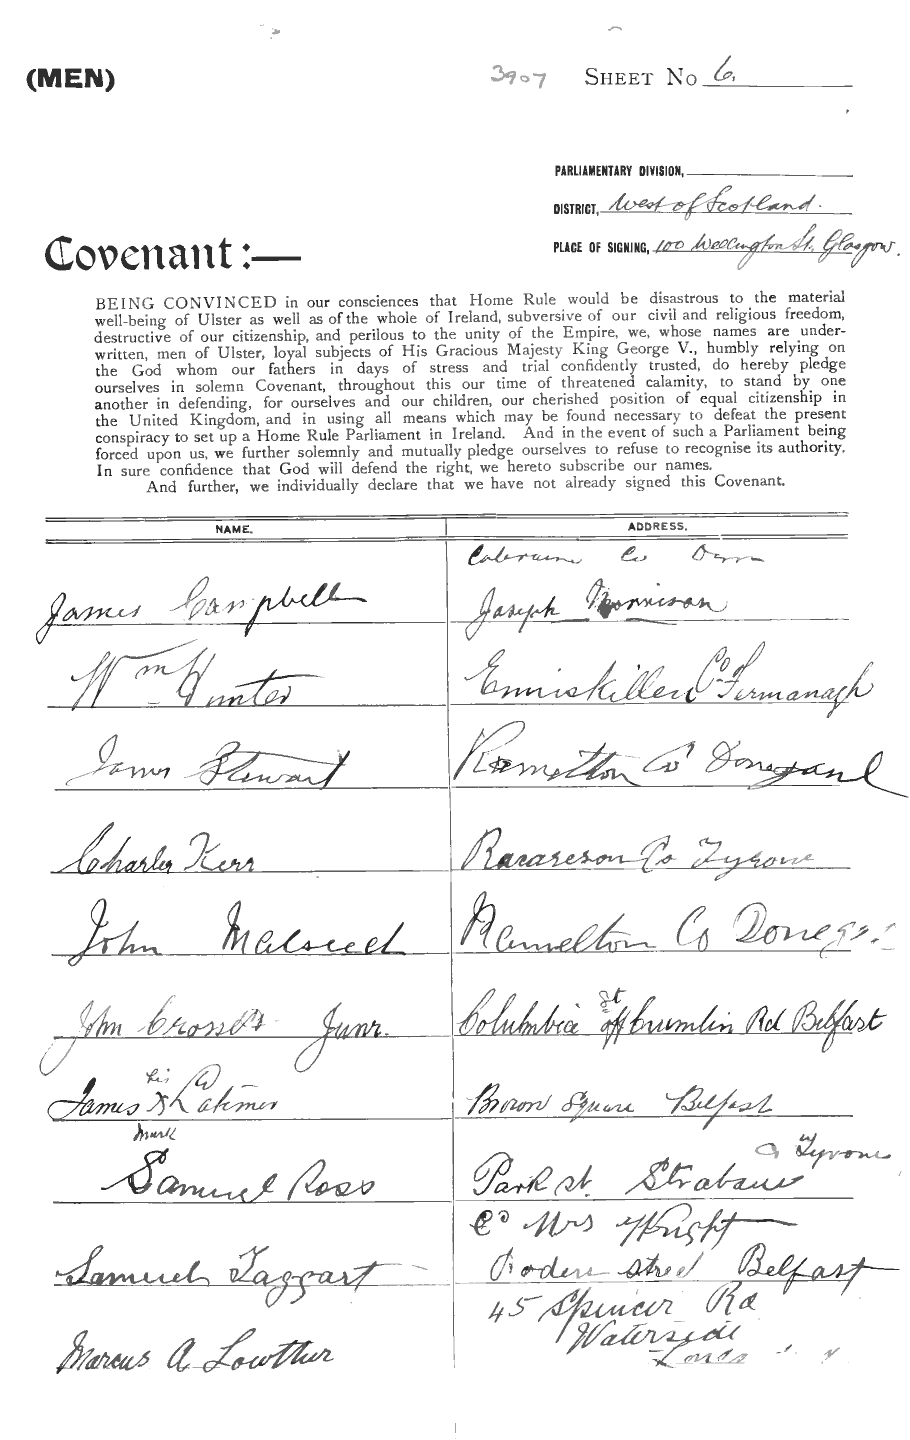 (MEN)
3907 SHEET No 6.
PARLIAMENTARY DIVISION,
DISTRICT, West of Scotland.
PLACE OF SIGNING, 100 Wellington St. Glasgow.
Covenant :—
BEING CONVINCED in our consciences that Home Rule would be disastrous to the material
well-being of Ulster as well as of the whole of Ireland, subversive of our civil and religious freedom,
destructive of our citizenship, and perilous to the unity of the Empire, we, whose names are under-
written, men of Ulster, loyal subjects of His Gracious Majesty King George V., humbly relying on
the God whom our fathers in days of stress and trial confidently trusted, do hereby pledge
ourselves in solemn Covenant, throughout this our time of threatened calamity, to stand by one
another in defending, for ourselves and our children, our cherished position of equal citizenship in
the United Kingdom, and in using all means which may be found necessary to defeat the present
conspiracy to set up a Home Rule Parliament in Ireland. And in the event of such a Parliament being
forced upon us, we further solemnly and mutually pledge ourselves to refuse to recognise its authority.
In sure confidence that God will defend the right, we hereto subscribe our names.
And further, we individually declare that we have not already signed this Covenant.
NAME. ADDRESS.
Coleraine Co Derry
James Campbell Joseph Morrison
Wm Hunter Enniskillen Co of Fermanagh
James Stewart Ramelton Co Donegal
Charles Kerr Co Tyrone
John Malseed Ramelton Co Donegal
John Crossett Junr. Columbia St off Crumlin Rd Belfast
his
James X Latimer Brown Square Belfast
mark
Co Tyrone
Samuel Ross Park st. Strabane
Co Mrs Wright
Samuel Taggart Roden street Belfast
45 Spencer Rd
Waterside
Marcus A Lowther